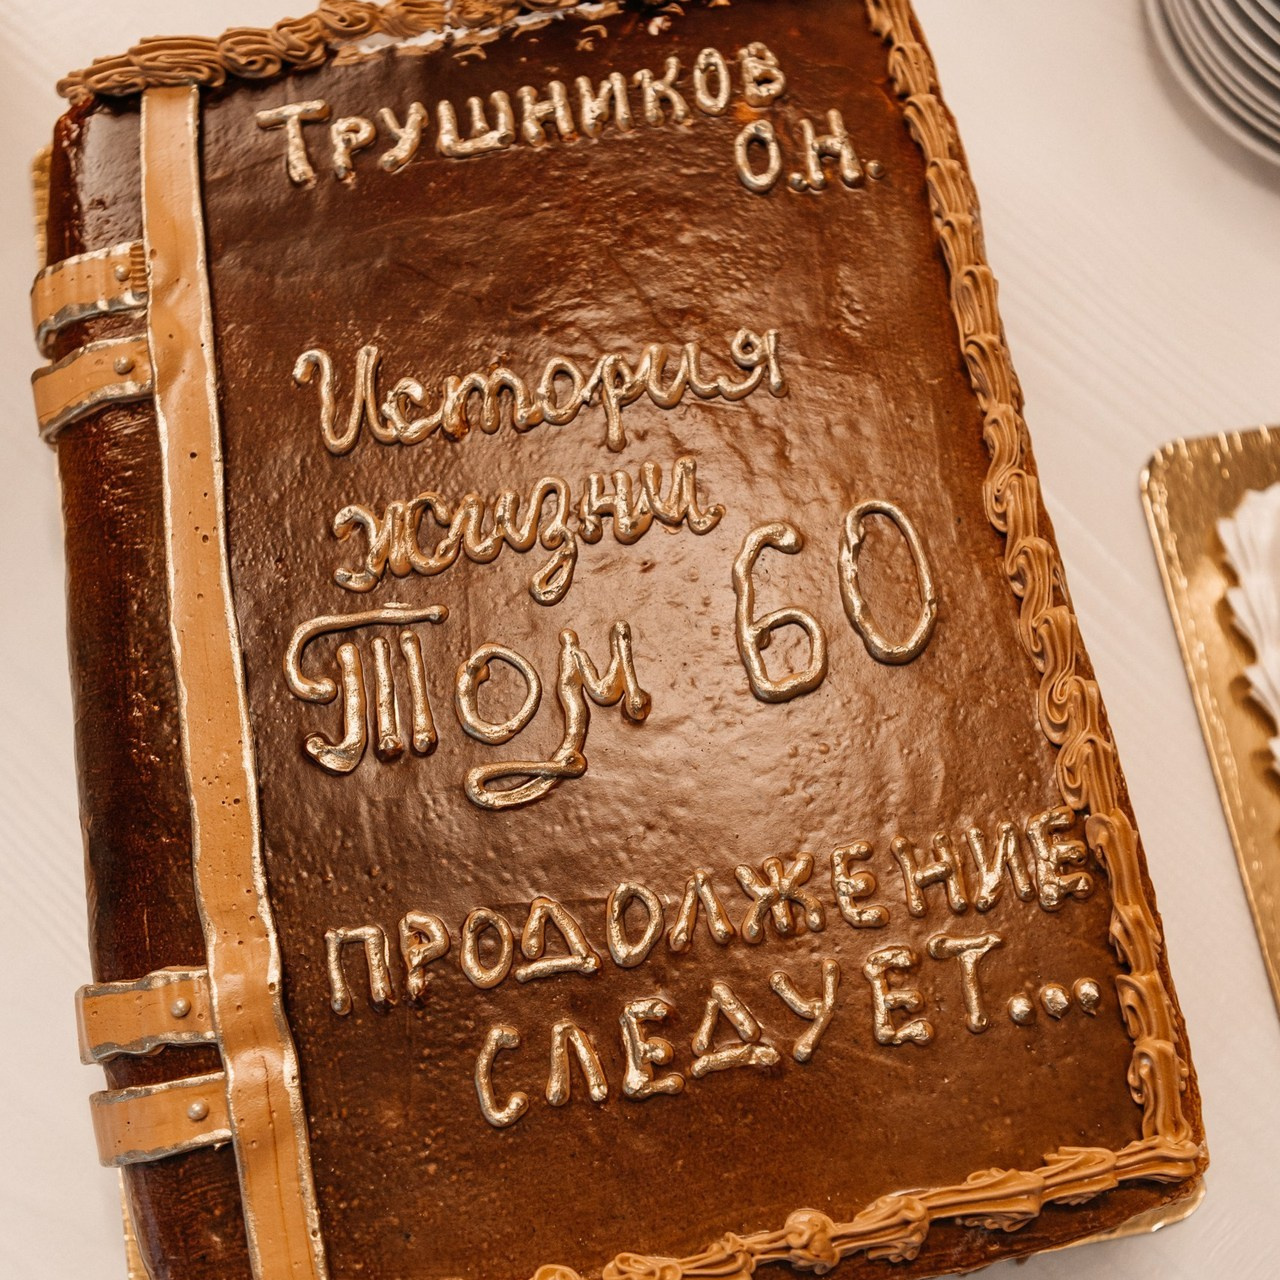 ТРУШНИКОВ
О.Н.
История
жизни
Том 60
ПРОДОЛЖЕНИЕ
СЛЕДУЕТ...